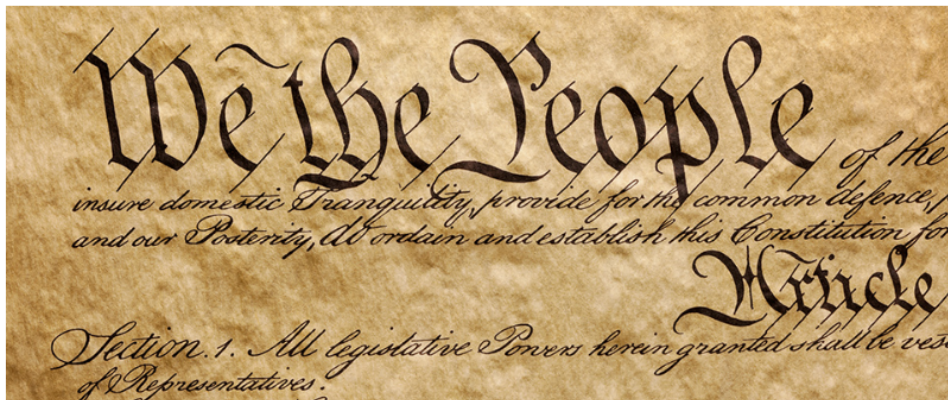 We the People of the
insure domestic Tranquility, provide for the common defence,
and our Posterity, do ordain and establish this Constitution for
Article
Section. 1. All legislative Powers herein granted shall be
of Representatives.